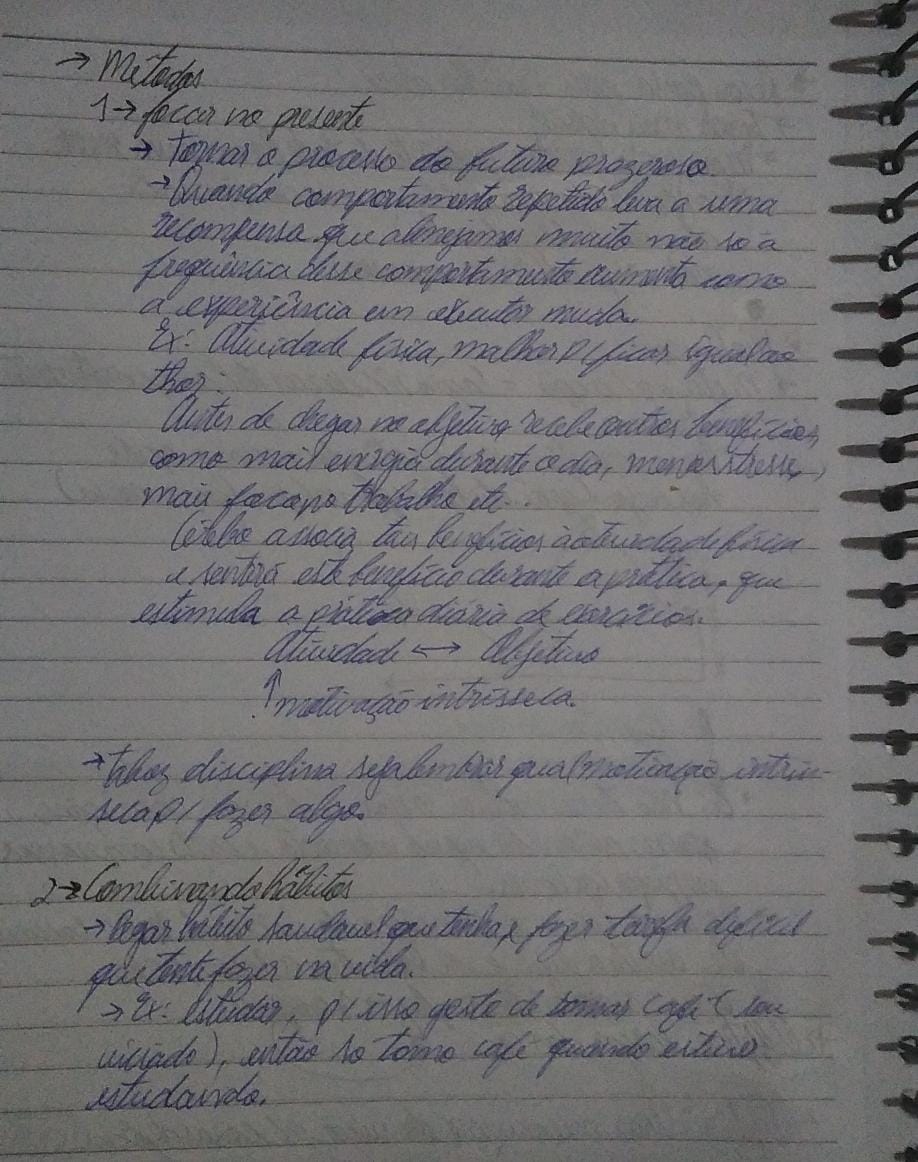 → Métodos
1→ focar no presente
→ tornar o processo do futuro prazeroso.
→ Quando comportamento repetido leva a uma
recompensa que almejamos muito não só a
frequência desse comportamento aumenta como
a experiência em executar muda.
Ex: Atividade física, malhar p/ ficar igual ao
thor.
Antes de chegar no objetivo, recebe outros benefícios,
como mais energia durante o dia, menos stresse,
mais foco no trabalho etc..
Cérebro associa tais benefícios à atividade física
e sentirá este benefício durante a prática, que
estimula a prática diária de exercícios.
Atividade ↔ Objetivo
↑ motivação intrísseca.
→ talvez disciplina seja lembrar qual motivação intrín-
seca p/ fazer algo.
2→ Combinando hábitos
→ Pegar hábito saudavel que tenha, e fazer tarefa dificil
que tente fazer na vida.
→ Ex: estudar, p/ isso gosto de tomar café (sou
viciado), então so tomo café quando estiver
estudando.